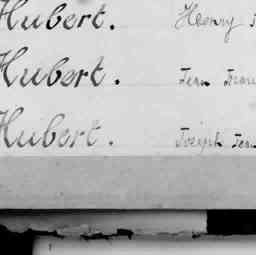 Hubert. Henry
Hubert. Jean
Hubert. Joseph Jean